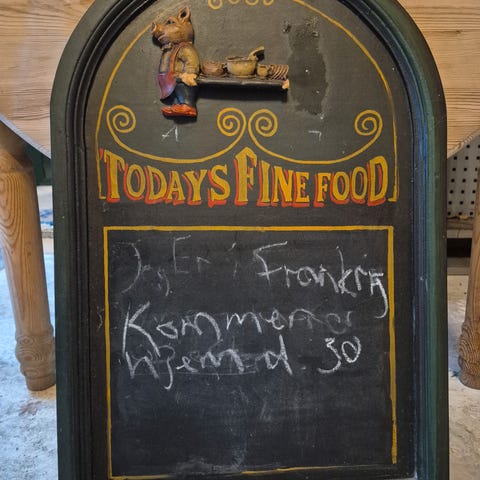 TODAYS FINE FOOD
Jeg Er i Frankrig
Kommer
hjem d 30